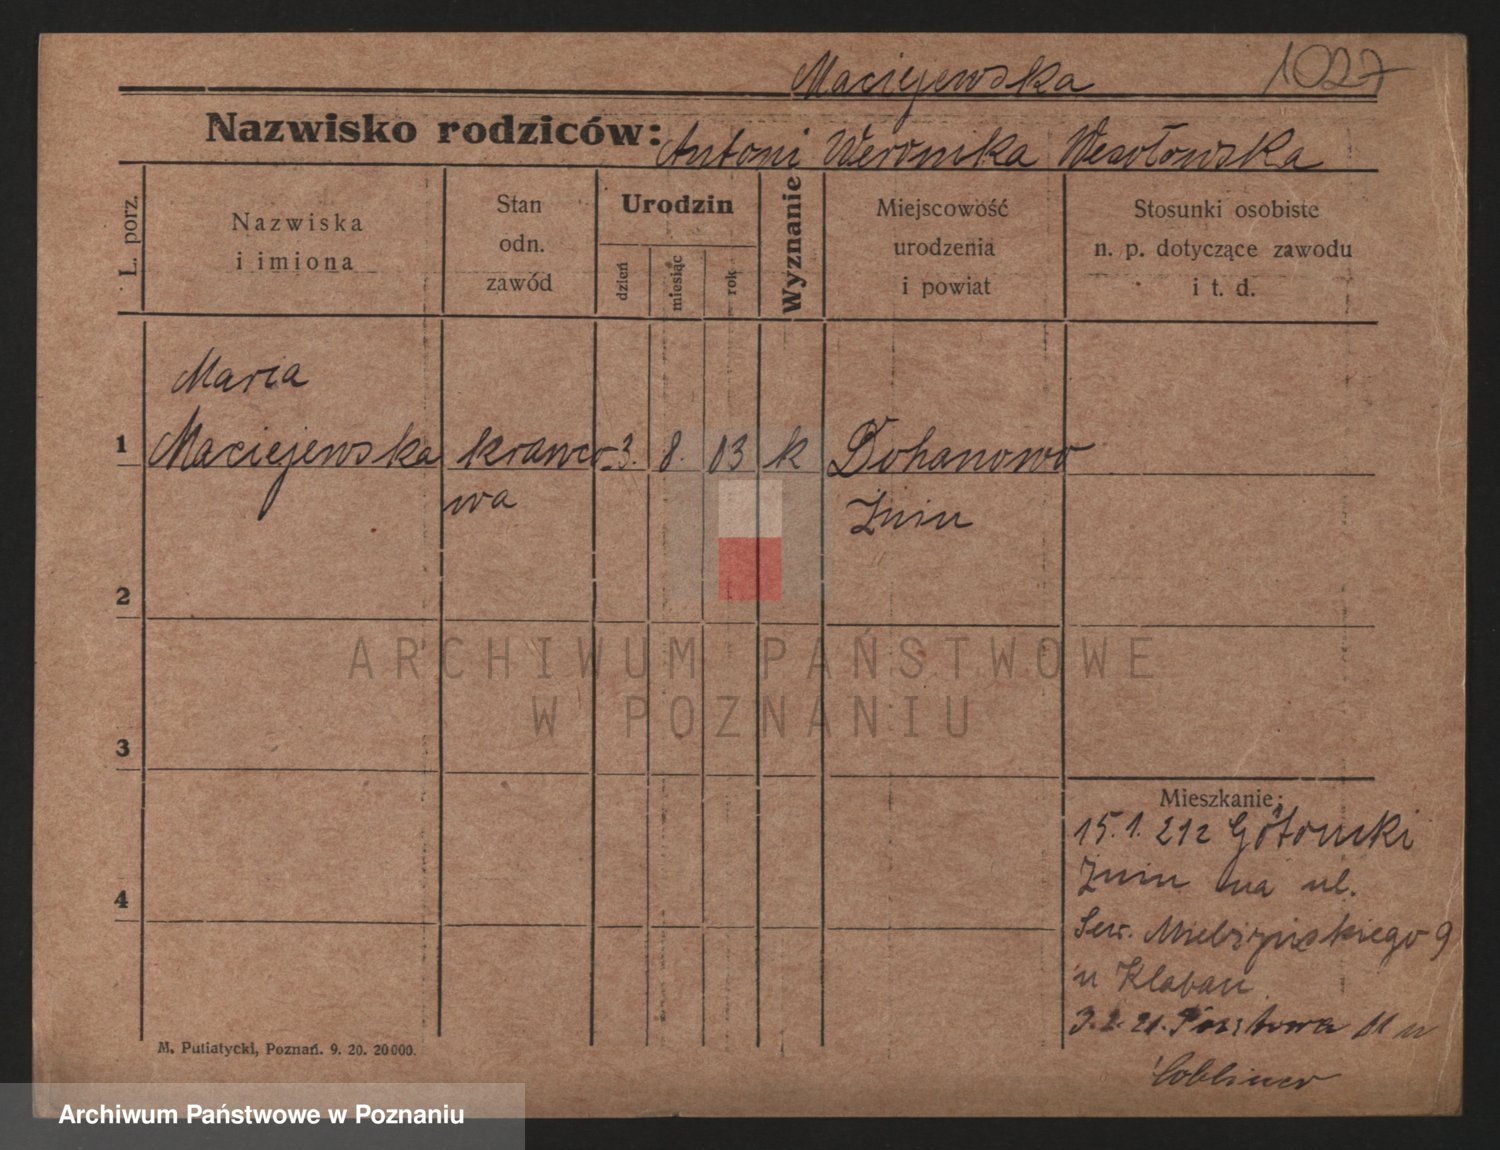 Maciejewska 1027
Nazwisko rodziców: Antoni Weronika Wesołowska
L. porz.
Nazwiska
i imiona
Stan
odn.
zawód
Urodzin
dzień
miesiąc
rok
Wyznanie
Miejscowość
urodzenia
i powiat
Stosunki osobiste
n. p. dotyczące zawodu
i t. d.
Maria
1 Maciejewska krawco 3. 8. 03 k Dohanowo
wa Żnin
2
ARCHIWUM PAŃSTWOWE
W POZNANIU
3
Mieszkanie:
15. 1. 212
Żnin na ul.
4
Sew. Mielżyńskiego 9
u
3. 2. 21. Pocztowa 11 u
M. Putiatycki, Poznań. 9. 20. 20000.
Archiwum Państwowe w Poznaniu